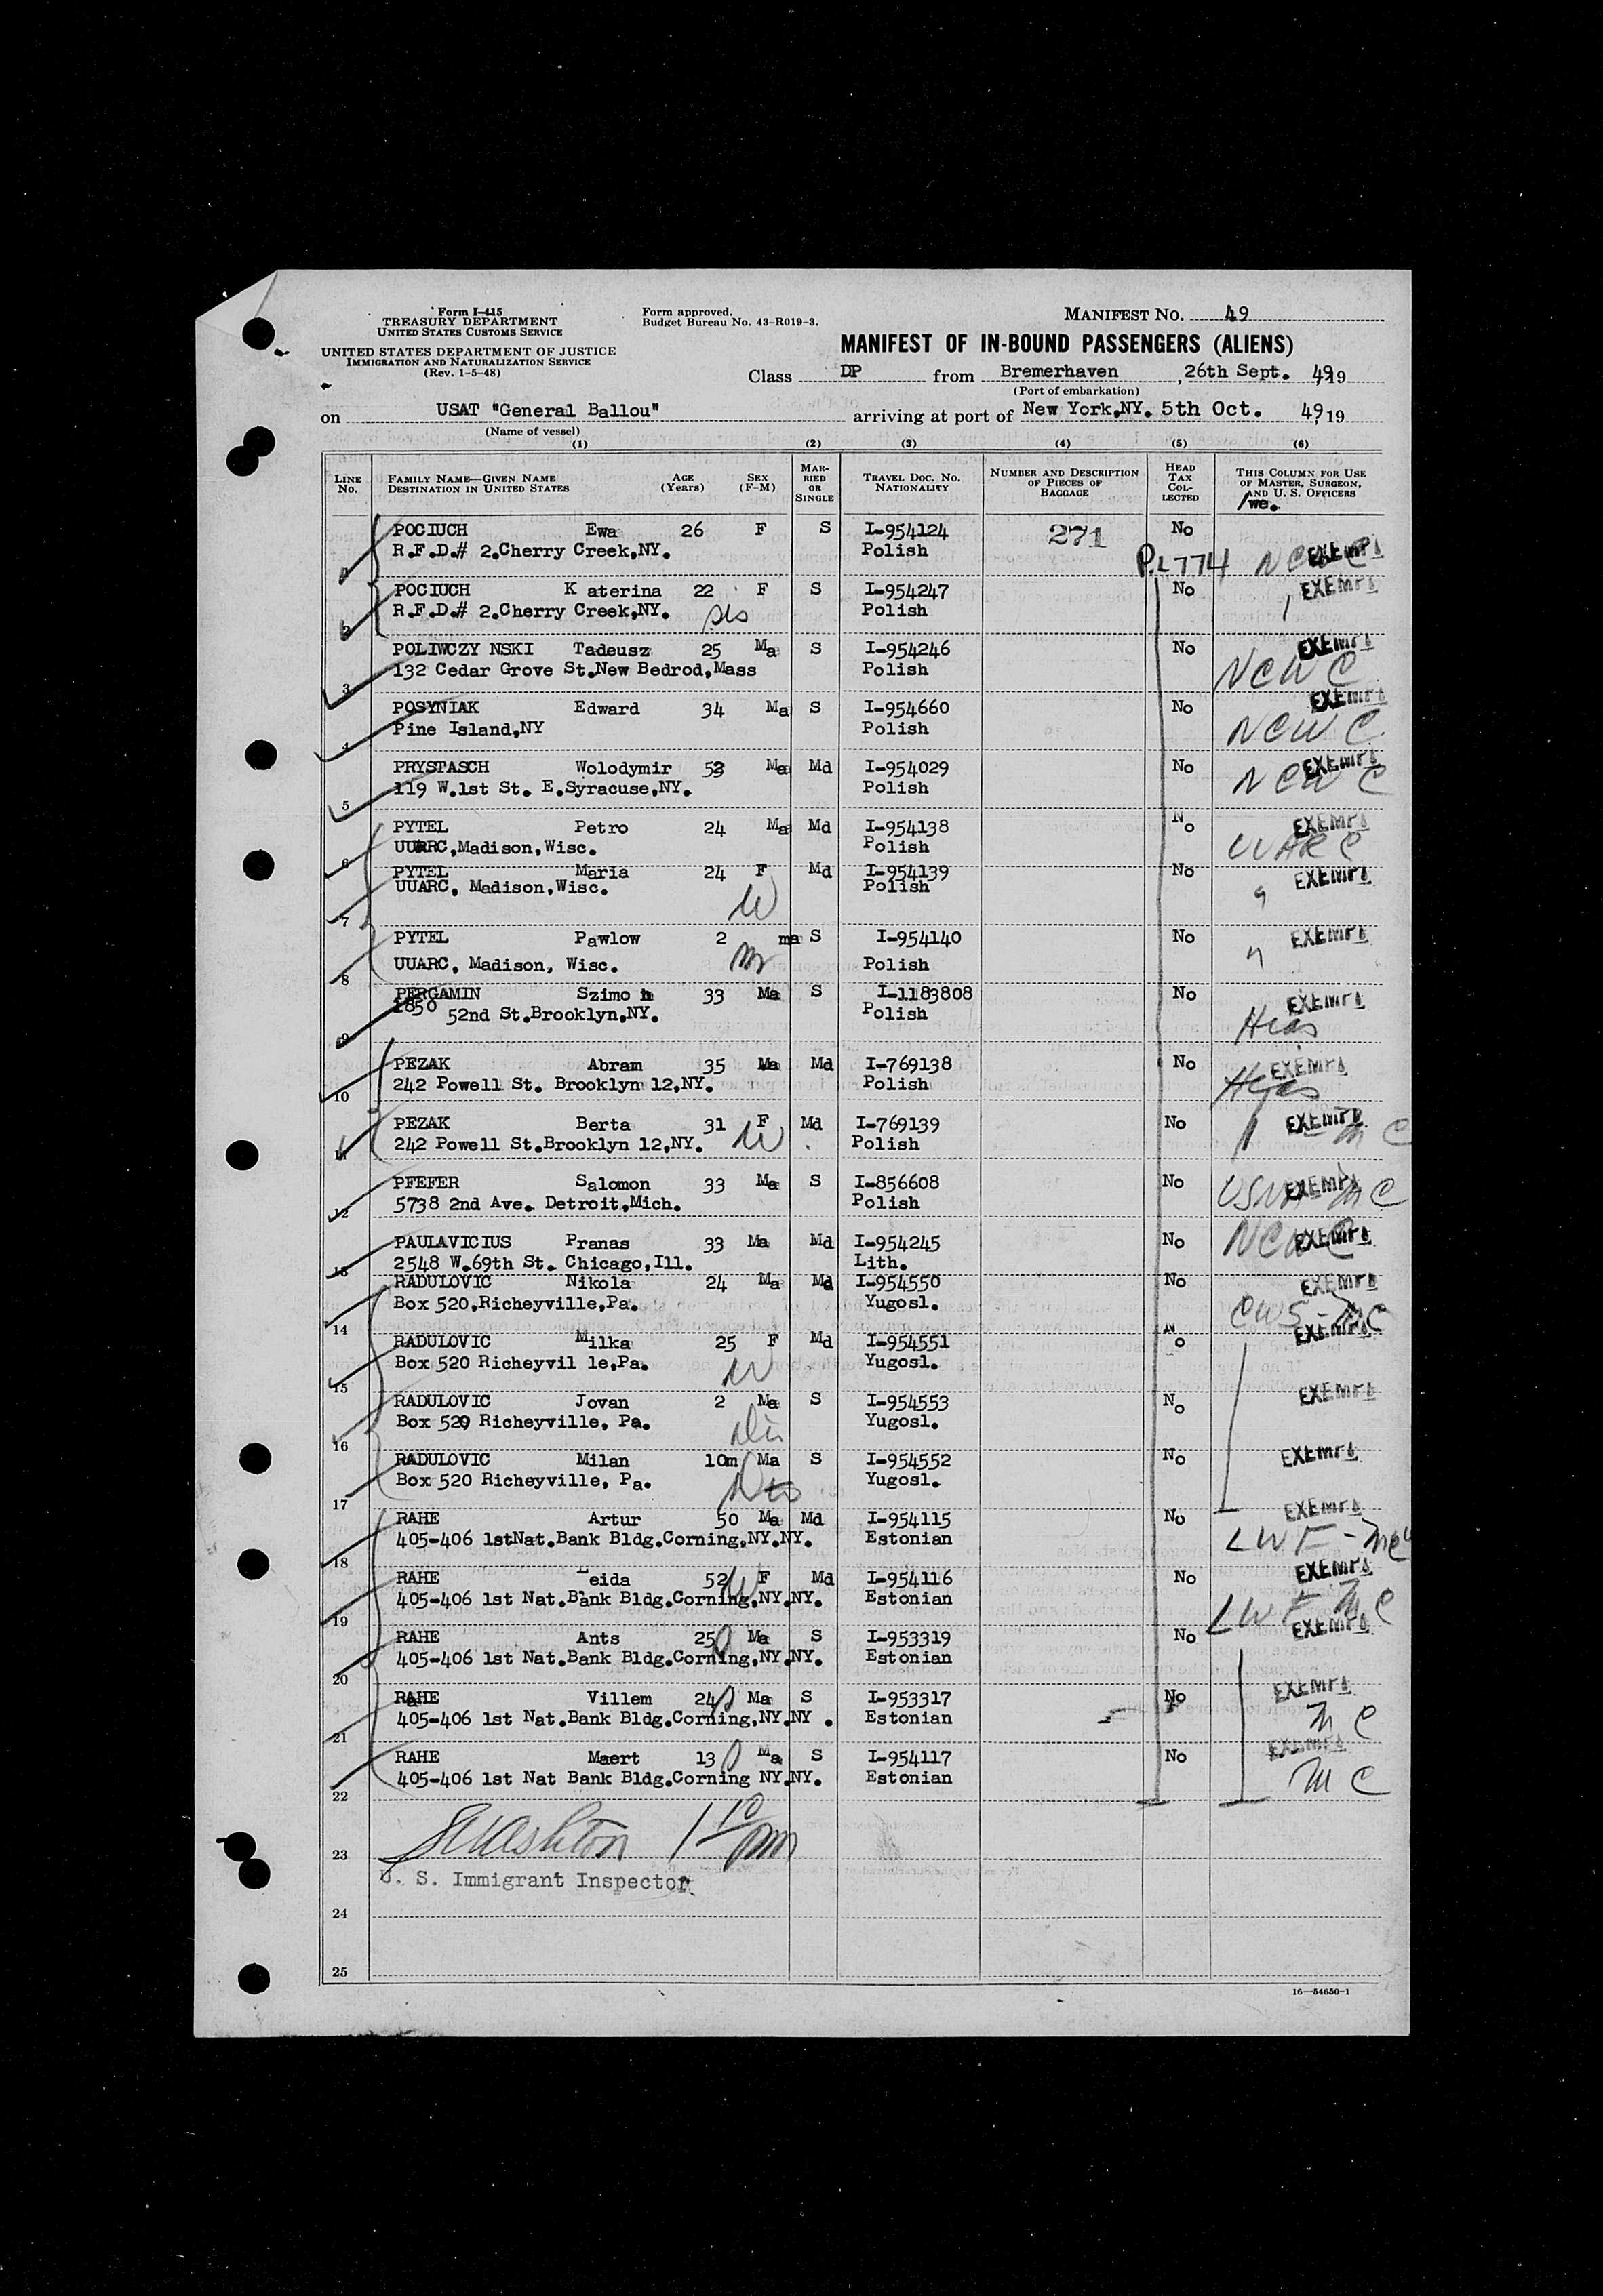 Form I-415
TREASURY DEPARTMENT
UNITED STATES CUSTOMS SERVICE
UNITED STATES DEPARTMENT OF JUSTICE
IMMIGRATION AND NATURALIZATION SERVICE
(Rev. 1-5-48)
Form approved.
Budget Bureau No. 43-R019-3.
MANIFEST NO. 49
MANIFEST OF IN-BOUND PASSENGERS (ALIENS)
Class DP from Bremerhaven, 26th Sept. 49, 19
(Port of embarkation)
on USAT "General Ballou" arriving at port of New York,NY. 5th Oct. 49, 19
(Name of vessel)
(1) (2) (3) (4) (5) (6)
LINE NO. FAMILY NAME—GIVEN NAME DESTINATION IN UNITED STATES AGE (Years) SEX (F-M) MARRIED OR SINGLE TRAVEL DOC. NO. NATIONALITY NUMBER AND DESCRIPTION OF PIECES OF BAGGAGE HEAD TAX COLLECTED THIS COLUMN FOR USE OF MASTER, SURGEON, AND U. S. OFFICERS
POCIUCH Ewa 26 F S I-954124 271 No
R.F.D.# 2.Cherry Creek,NY. Polish P.L 774 NCWC EXEMPT
2 POCIUCH K aterina 22 F S I-954247 No EXEMPT
R.F.D.# 2.Cherry Creek,NY. sis Polish
3 POLIWCZY NSKI Tadeusz 25 Ma S I-954246 No EXEMPT
132 Cedar Grove St.New Bedrod,Mass Polish NCWC
4 POSYNIAK Edward 34 Ma S I-954660 No EXEMPT
Pine Island,NY Polish NCWC
5 PRYSTASCH Wolodymir 53 Ma Md I-954029 No EXEMPT
119 W.1st St. E.Syracuse,NY. Polish NCWC
6 PYTEL Petro 24 Ma Md I-954138 No EXEMPT
UUARC,Madison,Wisc. Polish UUARC
7 PYTEL Maria 24 F Md I-954139 No EXEMPT
UUARC. Madison,Wisc. W Polish
8 PYTEL Pawlow 2 ma S I-954140 No EXEMPT
UUARC. Madison, Wisc. Polish
9 PERGAMIN Szimo n 33 Ma S I-1183808 No EXEMPT
1850 52nd St.Brooklyn,NY. Polish Hias
10 PEZAK Abram 35 Ma Md I-769138 No EXEMPT
242 Powell St. Brooklyn 12,NY. Polish Hias
11 PEZAK Berta 31 F Md I-769139 No EXEMPT
242 Powell St.Brooklyn 12,NY. W Polish MC
12 PFEFER Salomon 33 Ma S I-856608 No EXEMPT
5738 2nd Ave. Detroit,Mich. Polish USNA MC
13 PAULAVICIUS Pranas 33 Ma Md I-954245 No EXEMPT
2548 W.69th St. Chicago,Ill. Lith. NCWC
14 RADULOVIC Nikola 24 Ma Md I-954550 No EXEMPT
Box 520,Richeyville,Pa. Yugosl. CWS-MC
15 RADULOVIC Milka 25 F Md I-954551 No EXEMPT
Box 520 Richeyvil le,Pa. W Yugosl.
16 RADULOVIC Jovan 2 Ma S I-954553 No EXEMPT
Box 520 Richeyville, Pa. Yugosl.
17 RADULOVIC Milan 10m Ma S I-954552 No EXEMPT
Box 520 Richeyville, Pa. Yugosl.
18 RAHE Artur 50 Ma Md I-954115 No EXEMPT
405-406 1stNat.Bank Bldg.Corning,NY.NY. Estonian LWF-MC
19 RAHE Leida 52 W F Md I-954116 No EXEMPT
405-406 1st Nat.Bank Bldg.Corning,NY.NY. Estonian LWF MC
20 RAHE Ants 25 Ma S I-953319 No EXEMPT
405-406 1st Nat.Bank Bldg.Corning,NY.NY. Estonian
21 RAHE Villem 24 Ma S I-953317 No EXEMPT
405-406 1st Nat.Bank Bldg.Corning,NY.NY . Estonian MC
22 RAHE Maert 13 Ma S I-954117 No EXEMPT
405-406 1st Nat Bank Bldg.Corning NY.NY. Estonian MC
23 1 10 pm
U. S. Immigrant Inspector
24
25
16—54650-1